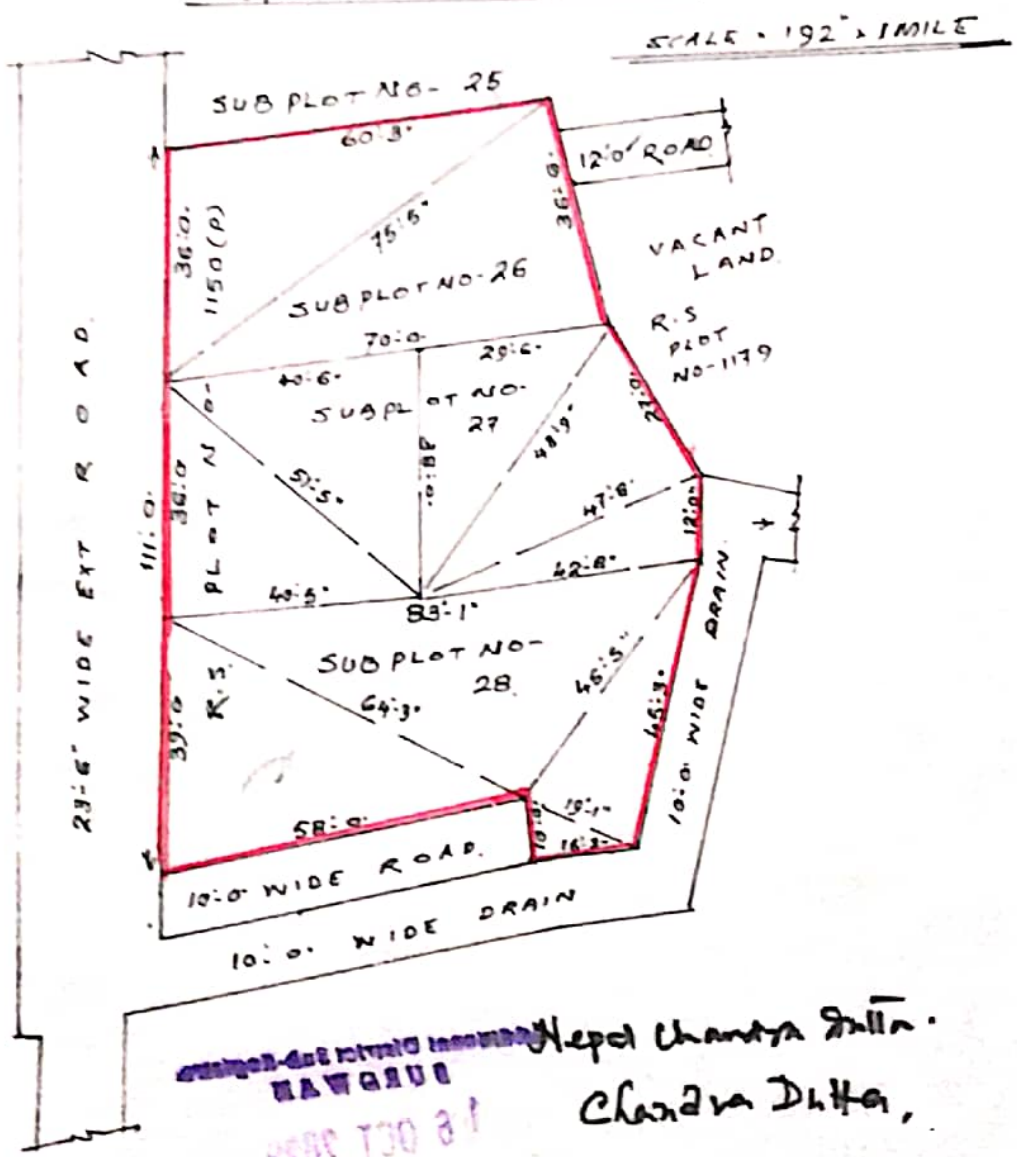 SCALE = 192" = 1 MILE
SUB PLOT NO- 25
60'-3"
12'-0" ROAD
36'-0"
75'-5"
36'-0"
1150(P)
VACANT
LAND.
SUB PLOT NO-26
R.S
PLOT
NO-1179
70'-0"
40'-6"
29'-6"
SUB PLOT NO-
27
27'-0"
48'-9"
38'-0"
51'-5"
47'-8"
12'-0"
23'-6" WIDE EXT ROAD.
111'-0"
36'-0"
R.S. PLOT NO-
40'-5"
83'-1"
42'-8"
SUB PLOT NO-
28.
64'-3"
46'-5"
45'-3"
10'-0" WIDE DRAIN.
39'-0"
58'-0"
10'-0"
19'-1"
16'-3"
10'-0" WIDE ROAD.
10'-0" WIDE DRAIN
Nepal Chandra Dutta.
Chandra Dutta,
BURDWAN
16 OCT